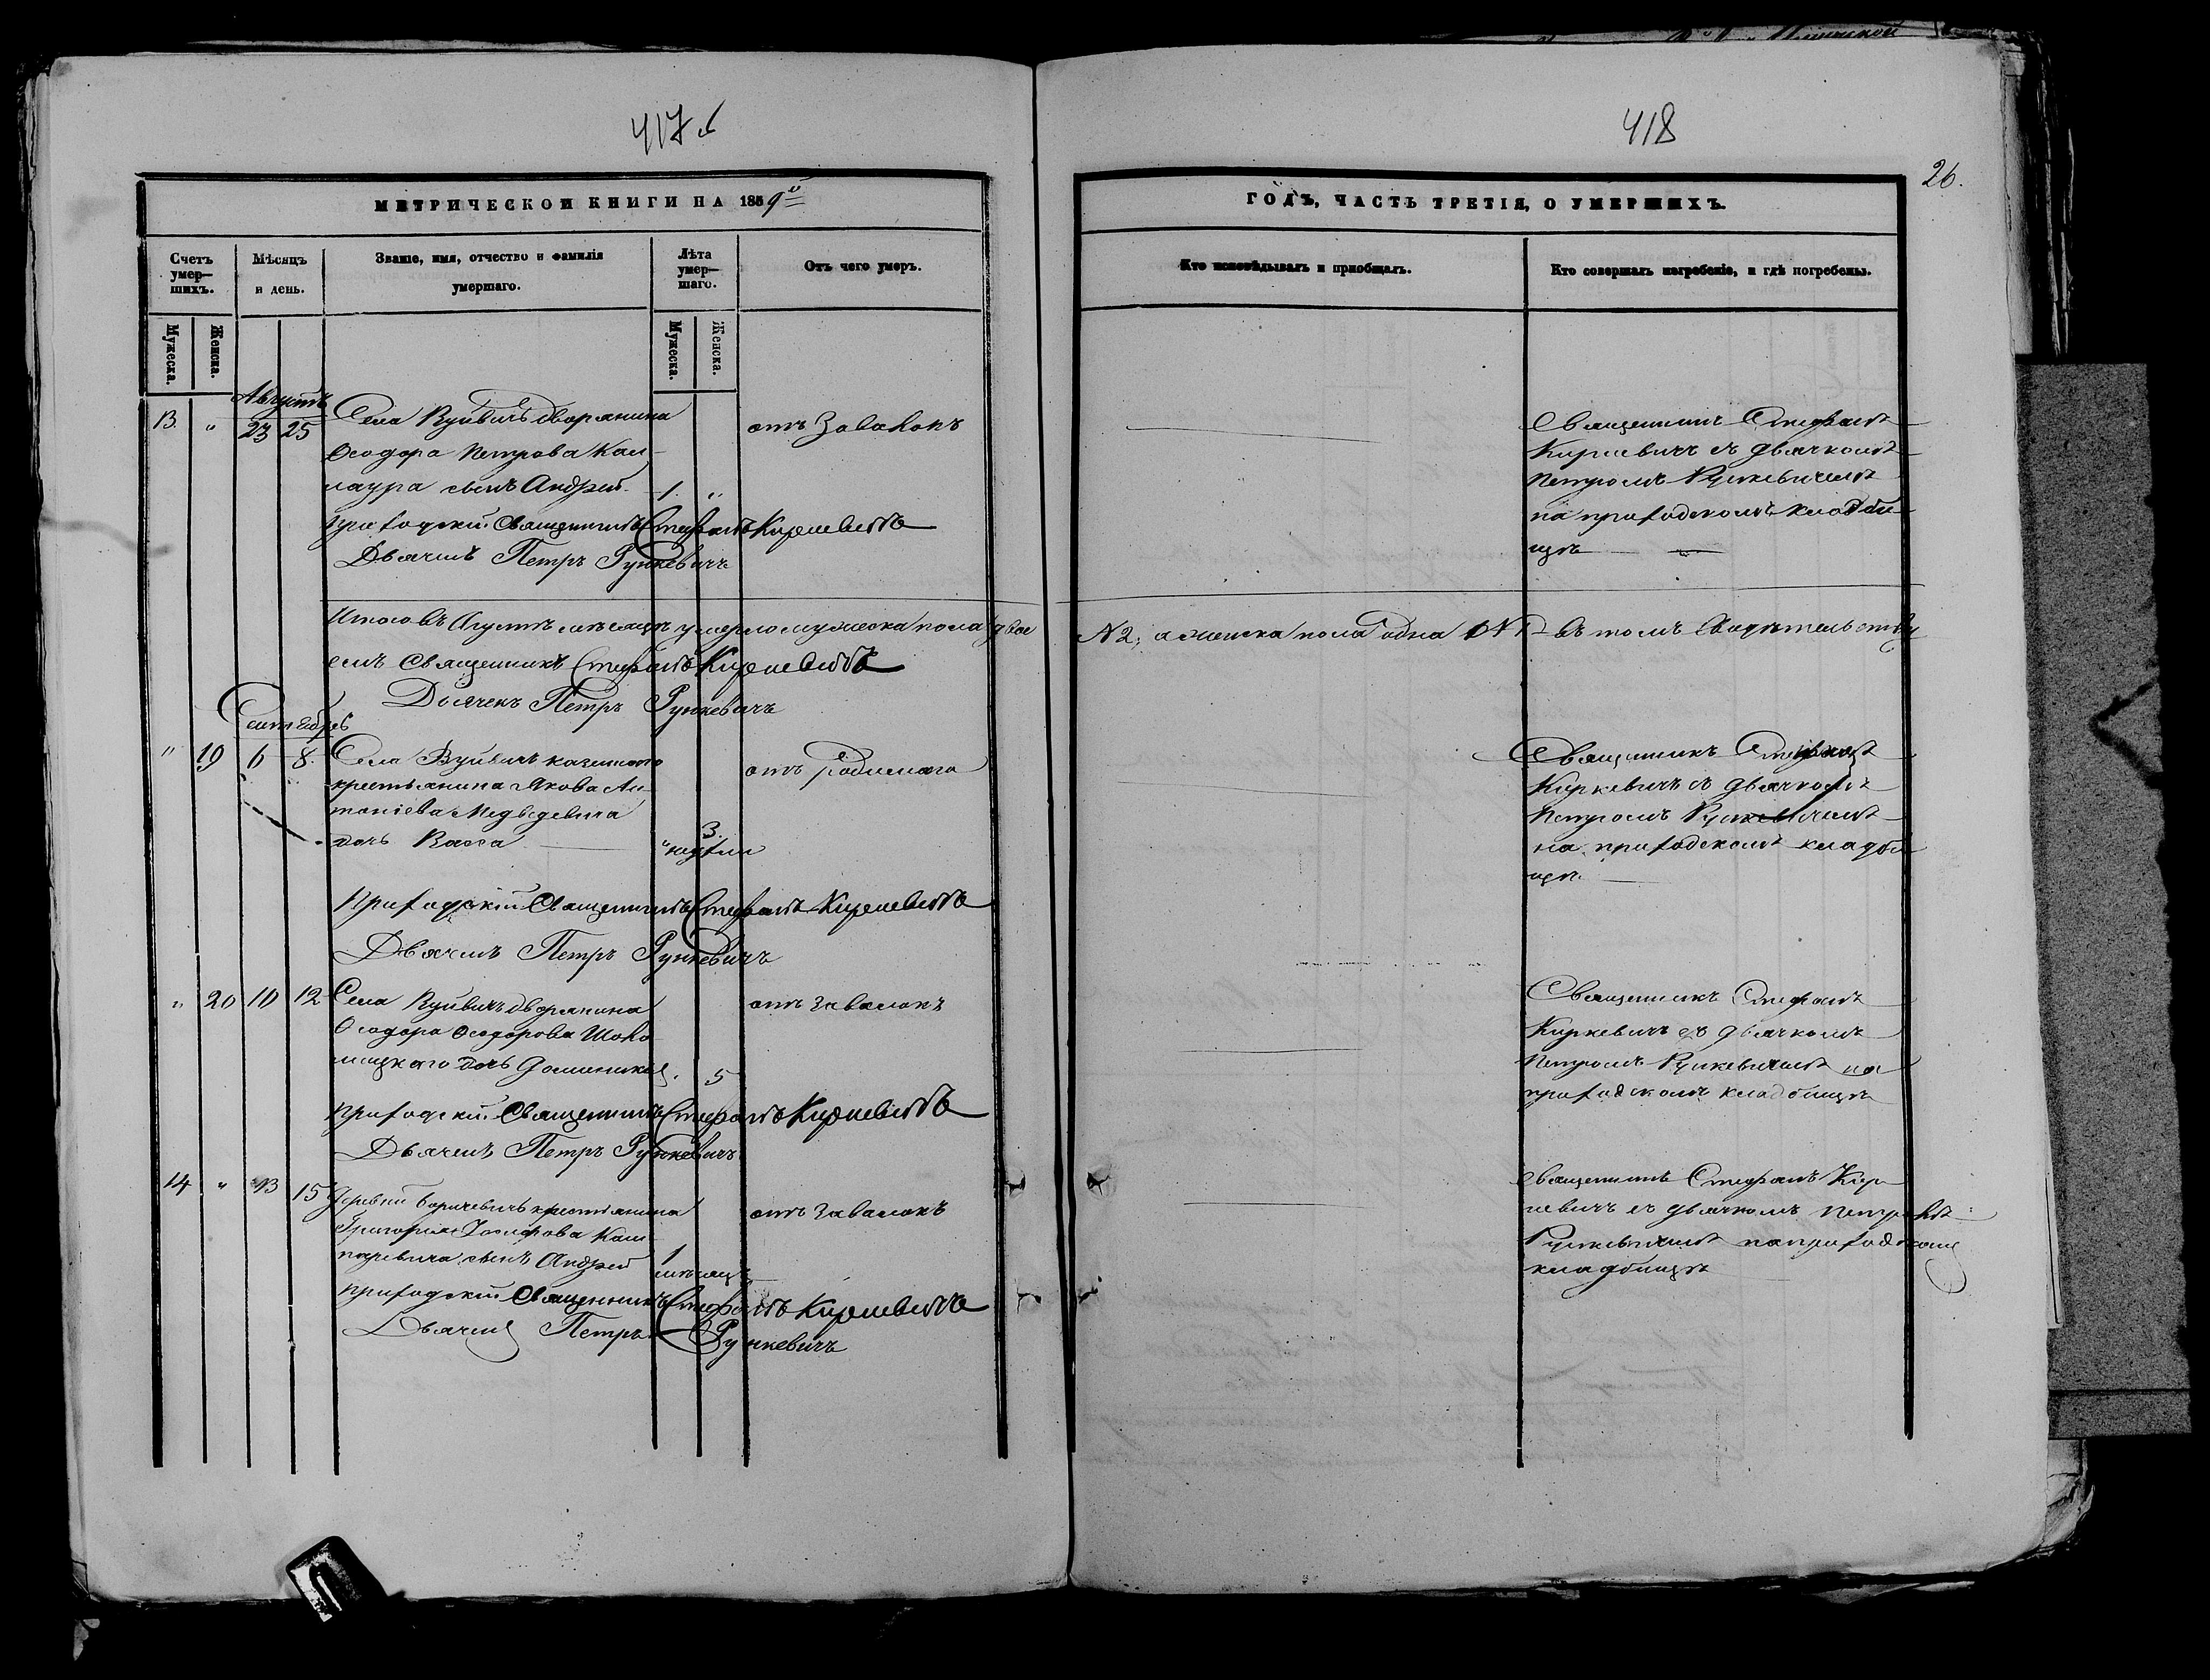 417 об
418
26.
МЕТРИЧЕСКОЙ КНИГИ НА 1859й
ГОДЪ, ЧАСТЬ ТРЕТІЯ, О УМЕРШИХЪ.
Счетъ умер— шихъ.
Мѣсяцъ и день.
Званіе, имя, отчество и фамилія умершаго.
Лѣта умер— шаго.
Отъ чего умеръ.
Кто исповѣдывалъ и пріобщалъ.
Кто совершалъ погребеніе, и гдѣ погребены.
Мужеска.
Женска.
Мужеска.
Женска.
Августъ
13. " 23 25
Села Вуйвичъ дворянина
Ѳеодора Петрова Кач-
наура сынъ Андрей 1. "
отъ Завалокъ
Приходскій Священникъ Стефанъ Киркевичъ
Дьячекъ Петръ Рункевичъ
Священникъ Стефанъ
Киркевичъ съ дьячкомъ
Петромъ Рункевичемъ
на приходскомъ кладби-
щѣ
Итого въ Августѣ мѣсяцѣ умерло мужеска пола двое N 2, а женска пола одна N 1 въ томъ свидѣтельству
емъ Священникъ Стефанъ Киркевичъ
Дьячекъ Петръ Рункевичъ
Сентябрь
" 19 6 8.
Села Вуйвичъ казеннаго
крестьянина Якова Ан-
тоніева Медведевича
дочь Васса " 3. недѣли
отъ родимаго
Приходскій Священникъ Стефанъ Киркевичъ
Дьячекъ Петръ Рункевичъ
Священникъ Стефанъ
Киркевичъ съ дьячкомъ
Петромъ Рункевичемъ
на приходскомъ кладби
щѣ.
" 20 10 12
Села Вуйвичъ дворянина
Ѳеодора Ѳеодорова Шоло
мицкаго дочь Доминика . 5
отъ завалокъ
Приходскій Священникъ Стефанъ Киркевичъ
Дьячекъ Петръ Рункевичъ
Священникъ Стефанъ
Киркевичъ съ дьячкомъ
Петромъ Рункевичемъ на
приходскомъ кладбищѣ
14 " 13 15
Деревни Боричевичъ крестьянина
Григорія Іосифова Каш
паревича сынъ Андрей 1 мѣсяцъ
отъ завалокъ
Приходскій Священникъ Стефанъ Киркевичъ
Дьячекъ Петръ Рункевичъ
Священникъ Стефанъ Кир
кевичъ съ дьячкомъ Петромъ
Рункевичемъ на приходскомъ
кладбищѣ